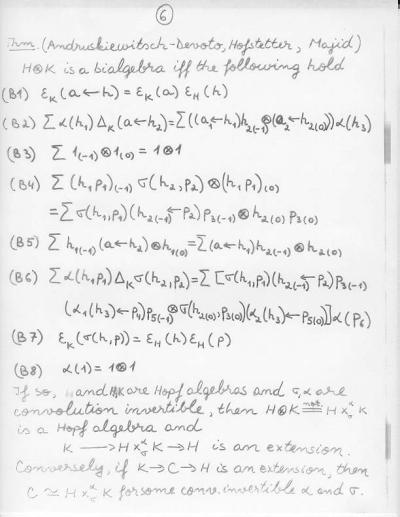 6
Thm. (Andruskiewitsch-Devoto, Hofstetter, Majid)
H⊗K is a bialgebra iff the following hold
(B1) ε_K(a↼h) = ε_K(a) ε_H(h)
(B2) Σ α(h₁) Δ_K(a↼h₂) = Σ((a₁↼h₁)h₂₍₋₁₎⊗(a₂↼h₂₍₀₎))α(h₃)
(B3) Σ 1₍₋₁₎⊗1₍₀₎ = 1⊗1
(B4) Σ (h₁p₁)₍₋₁₎ σ(h₂,p₂) ⊗(h₁p₁)₍₀₎
=Σσ(h₁,p₁)(h₂₍₋₁₎↼p₂)p₃₍₋₁₎⊗h₂₍₀₎p₃₍₀₎
(B5) Σ h₁₍₋₁₎(a↼h₂)⊗h₁₍₀₎=Σ(a↼h₁)h₂₍₋₁₎⊗h₂₍₀₎
(B6) Σα(h₁p₁)Δ_Kσ(h₂,p₂)=Σ[σ(h₁,p₁)(h₂₍₋₁₎↼p₂)p₃₍₋₁₎
(α₁(h₃)↼p₄)p₅₍₋₁₎⊗σ(h₂₍₀₎,p₃₍₀₎)(α₂(h₃)↼p₅₍₀₎)]α(p₆)
(B7) ε_K(σ(h,p)) = ε_H(h)ε_H(p)
(B8) α(1) = 1⊗1
If so, H and K are Hopf algebras and σ,α are
convolution invertible, then H⊗K ≝not. H ×^α_σ K
is a Hopf algebra and
K → H ×^α_σ K → H is an extension.
Conversely, if K→C→H is an extension, then
C ≃ H ×^α_σ K for some conv. invertible α and σ.